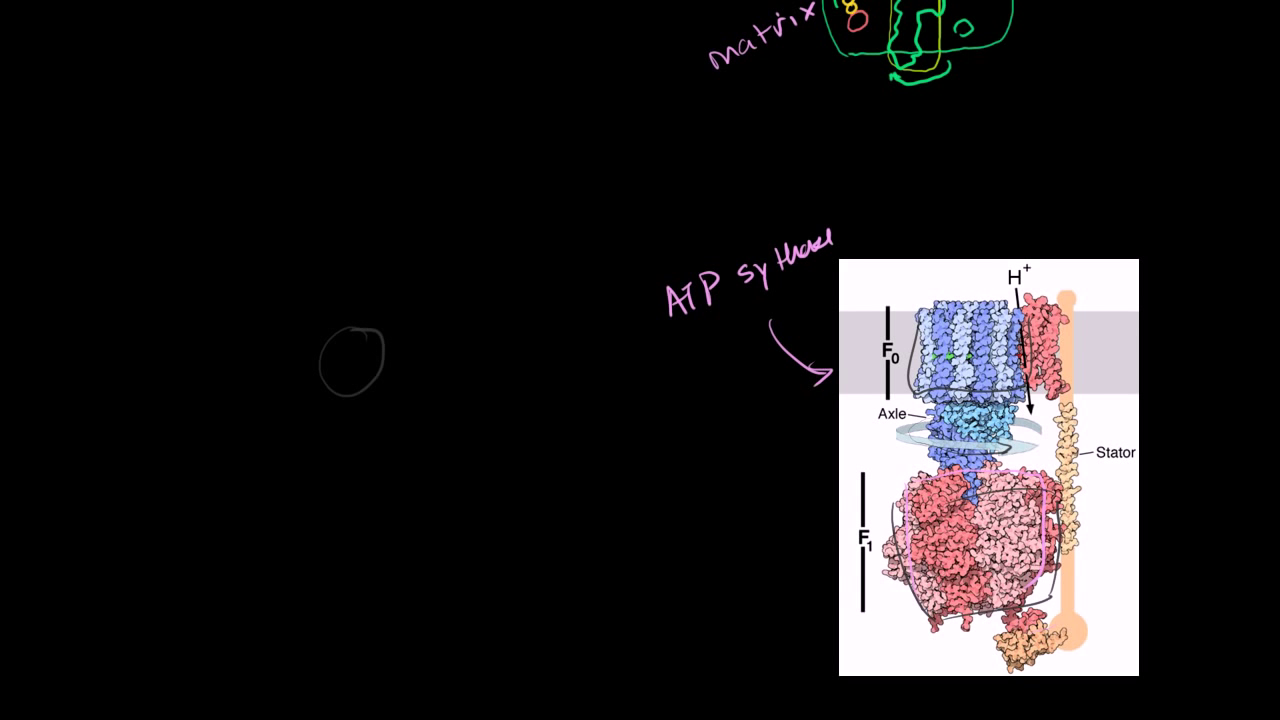 matrix
ATP sythase
H+
F0
Axle
Stator
F1